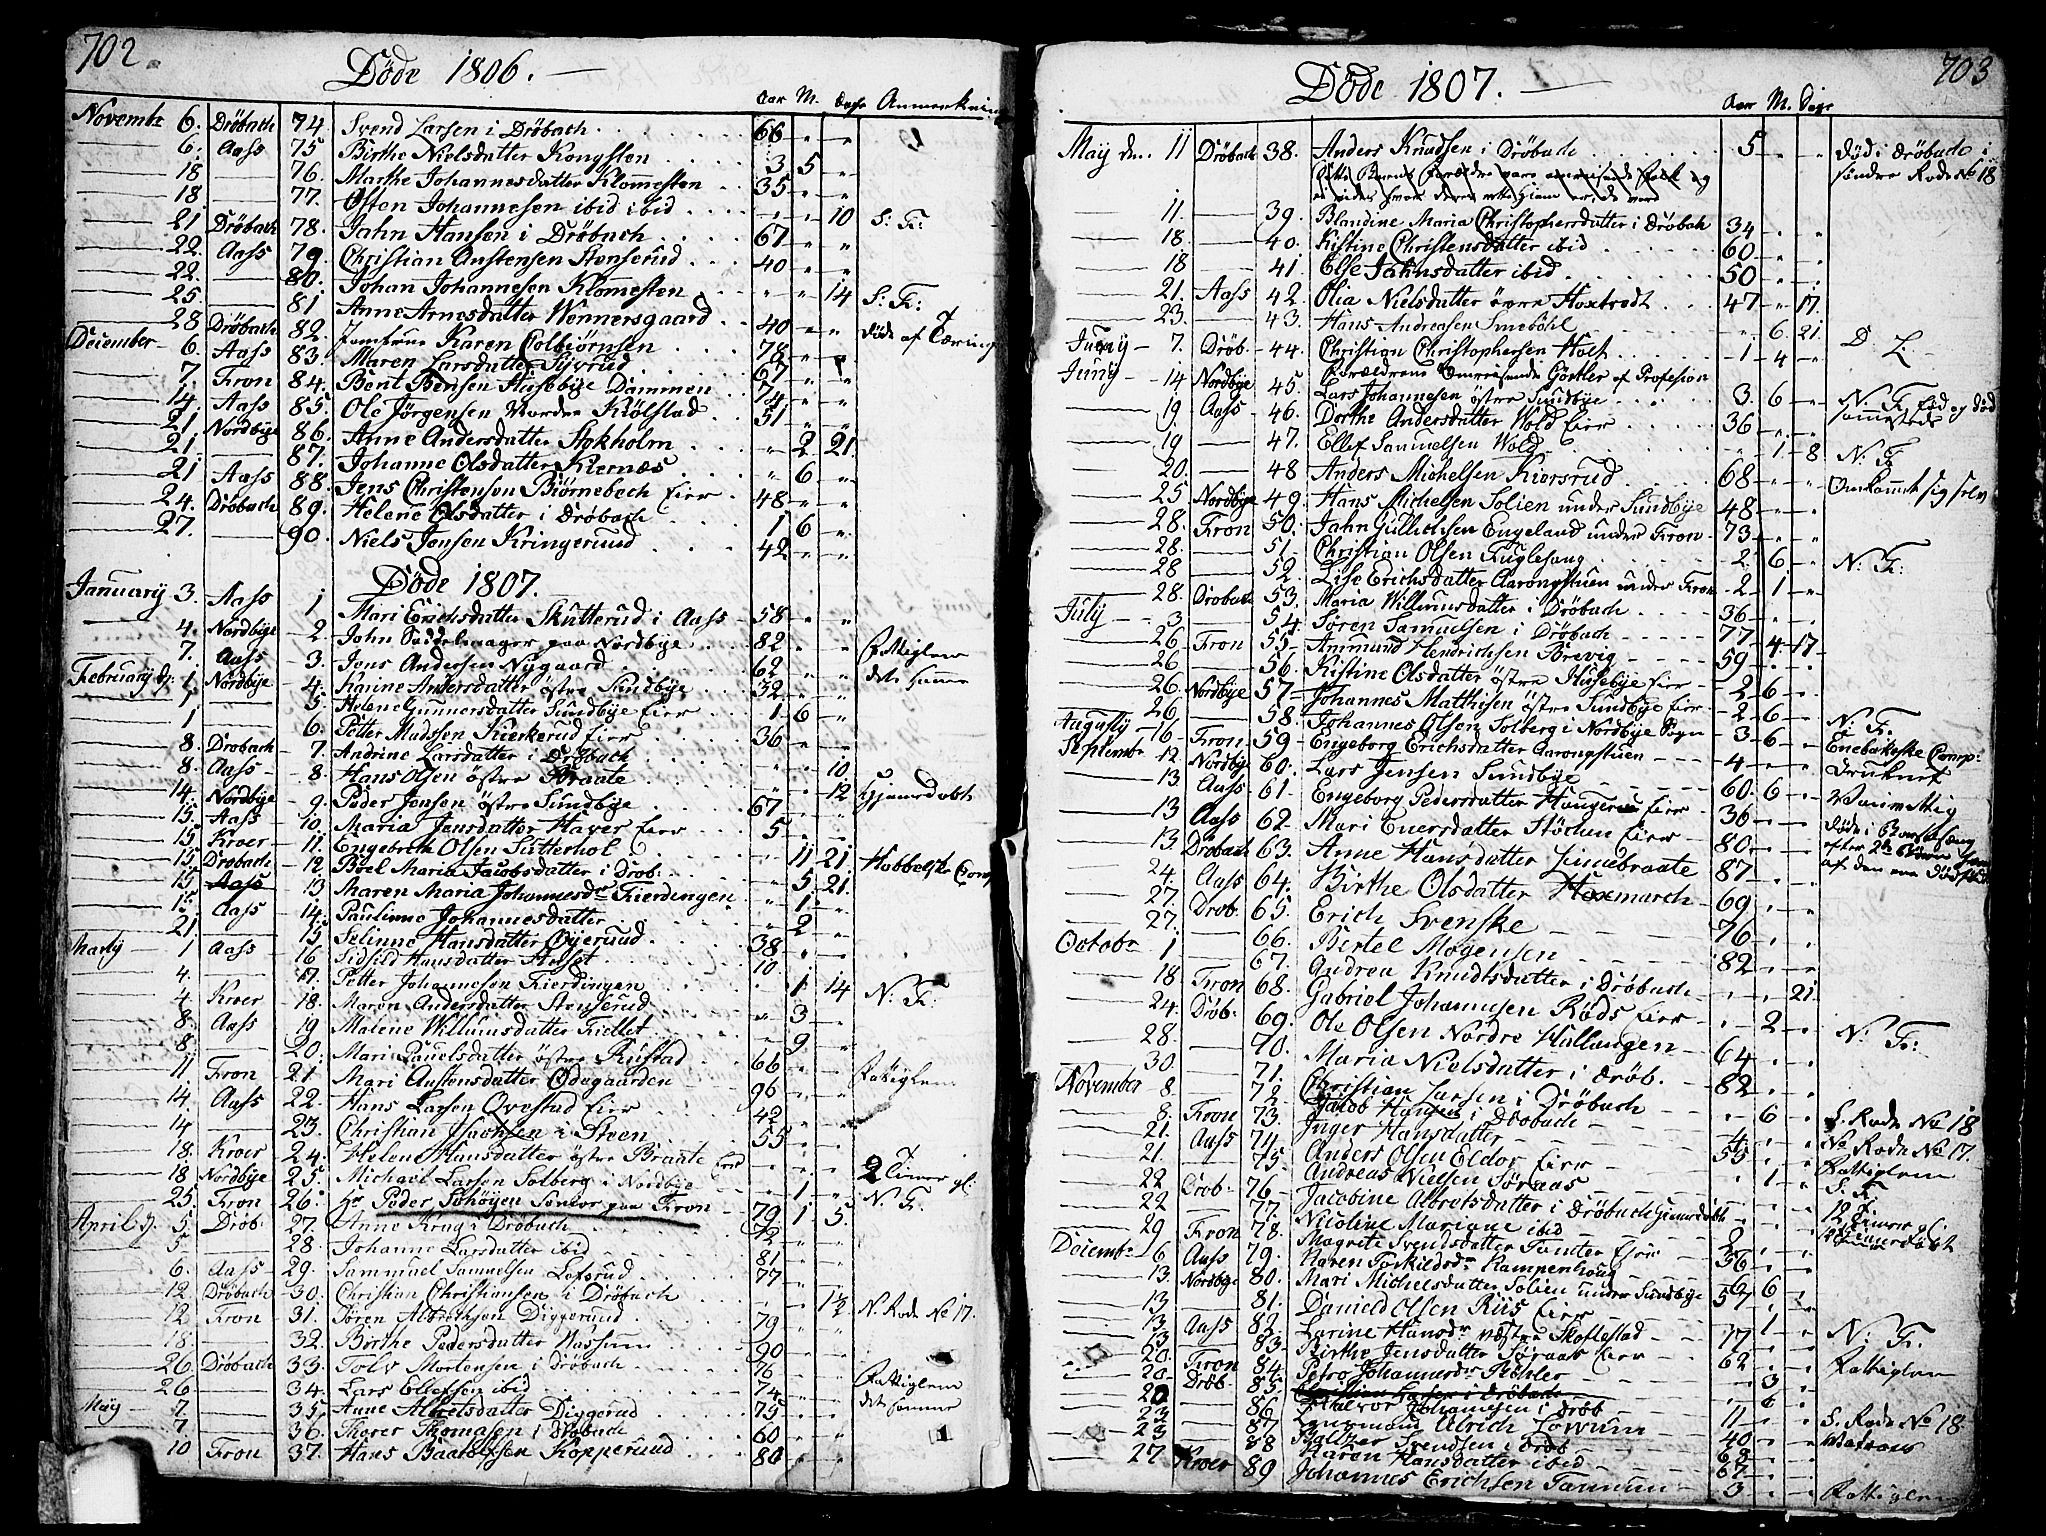 702.
Döde 1806.
Aar M. Dage Anmerkning
Novembr 6. Dröbach 74 Svend Larsen i Dröbach 66 " "
6. Aass 75 Birthe Nielsdatter Kongsten 3 5 "
18 76. Marthe Johannesdatter Klomesten 35 " "
18 77. Osten Johannesen ibid ibid " " 10 S: Fr:
21 Dröbach 78. Jahn Hansen i Dröbach 67 " "
22. Aass 79. Christian Anstensen Stenserud 40 " "
22. 80. Johan Johannesen Klomesten " " 14 S: Fr:
25. 81 Anne Arnesdatter Wonnersgaard 40 " "
28. Dröbach 82. Jomfrue Karen Colbiörnsen 78 " " döde af Tæring
December 6. Aass 83. Maren Larsdatter Sijverud 67 " "
7. Fron 84. Bent Bensen Husebije Dammen 74 " "
14. Aass 85. Ole Jörgensen Nordre Kiölstad 51 " "
21 Nordbije 86. Anne Andersdatter Stokholm " 2 21.
21. 87. Johanne Olsdatter Kiernæs " 6 "
21 Aass 88. Jens Christensen Biörnebech Eier 48 " "
24. Dröbach 89. Helene Olsdatter i Dröbach 1 6 "
27. 90. Niels Jensen Kringerund 42 " "
Döde 1807.
January 3. Aass 1 Mari Erichsdatter Skutterud i Aass 58 " "
4. Nordbije 2. John Saddelmager paa Nordbije 82 " " Fattiglem
7. Aass 3. Jens Andersen Nygaard 62 " " det samme
February d. 1 Nordbije 4. Karine Andersdatter östre Sundbije 32 " "
1 5. Helene Gunnersdatter Sundbije Eier 1 6 "
1 6. Petter Madssen Kierkerud Eier 36 " "
8. Drobach 7. Andrine Larsdatter i Dröbach " " 10.
8. Aass 8. Hans Olsen östre Braate " " 12 Hjemdöbt
14. Nordbije 9. Peder Jensen östre Sundbije 67 " "
15. Aass 10. Maria Jensdatter Haver Eier 5 " "
15 Kroer 11. Engebreth Olsen Sitterhol " 11 21.
15 Drobach 12. Boel Maria Jacobsdatter i Dröb. " 5. 21. Hobbelske Comp
15 Aass 13 Maren Maria Johannesdr Fierdingen " 1 "
15 Aass 14. Paulinne Johannesdatter " 2 "
21 15. Selinne Hansdatter Öijerud 38 " "
Marty 1 Aass 16. Sidsild Hansdatter Holset 10 " "
4. 17. Petter Johannesen Fierdingen " 1 14 N: Fr:
4. Kroer 18. Maren Andersdatter Stenserud " 3 "
8. Aass 19 Malene Willumsdatter Fiellet " 9 "
8 20. Mari Paulsdatter östre Rustad 66 " " Fattiglem
11 Fron 21. Mari Anstensdatter Ödegaarden 96 " "
14. Aass 22. Hans Larsen Qvestad Eier 42 " "
14 23. Christian Isachsen i Steen 55 " "
18. Kroer 24. Helene Hansdatter östre Braate Eier " " " 2 Timer gl:
18 Nordbije 25. Michael Larsen Solberg i Nordbije " 1 " N. Fr.
25. Fron 26. Hr Peder Schöyen Senior paa Fron 79 1 5.
April d. 5. Dröb. 27. Anne Krog i Dröbach
5 28. Johanne Larsdatter ibid 81 " "
6. Aass 29. Sammuel Samuelsen Lofsrud 77 " "
12 Dröbach 30. Christian Christiansen i Dröbach " " N. Rode No 17.
12 Fron 31. Sören Albrethsen Diggerud 79 " "
18 32. Birthe Pedersdatter Nassum 90 " "
26 Dröbach 33. Tolv Mortensen i Dröbach 76 " " Fattiglem
26 34. Lars Ellefsen ibid 74 " " det samme
Maij 7 35. Anne Albretsdatter Diggerud 75 " "
7. 36. Thorer Thomasen i Dröbach 60 " "
10 Fron 37. Hans Baaltsen Kopperund 80 " "
703
Döde 1807.
Aar M. Dage
Maij den 11 Dröbach 38. Anders Knudsen i Dröbach 5 " " Död i Dröbach i
söndre Rode No 18
11. 39. Blandine Maria Christophersdatter i Dröbach 34 " "
18. 40. Kistine Christensdatter ibid 60 " "
18 41. Else Jahnsdatter ibid 50 " "
21. Aass 42. Olia Nielsdatter övre Hoxtvedt 47 " 17.
23. 43. Hans Andreasen Smeböhl " 6 21.
Juny 7. Dröb. 44. Christian Christophersen Holt 1 4 " D. L.
Forældrene Omreisende Görtler af Profesion
Juny 14 Nordbije 45. Lars Johannesen östre Sundbije 3. 6 " N. Fr. Föd og död
sammesteds
19. Aass 46. Dorthe Andersdatter Wold Eier 36 " "
19 47. Ellef Samuelsen Wold " 1 8 N. Fr
20. 48 Anders Michelsen Kiersrud 68 " " Omkommet sig selv
25 Nordbije 49. Hans Michelsen Solien under Sundbije 48 " "
28. Fron 50. Jahn Gullichsen Engeland under Fron 73 " "
28. 51. Christian Olsen Fuglesang 2. 6 " N: Fr:
28 52. Lise Erichsdatter Aarongstuen under Fron 2 1 "
28. Drobach 53. Maria Willumsdatter i Dröbach 36 " "
July 3 54. Sören Samuelsen i Dröbach 77 " "
26 Fron 55. Ammund Hendrichsen Brevig 59 4 17
26 56. Kistine Olsdatter östre Husebije Eier 2 6 "
26. Nordbije 57. Johannes Mathisen östre Sundbije Eier 2 6 "
26 58. Johannes Olsen Solberg i Nordbije Sogn 3 6 " N: F.
Augusty 16. Fron 59. Engeborg Erichsdatter Aarongstuen 4 " " Enebakske Comp:
Septembr 12 Nordbij 60. Lars Jensen Sundbije 60. 6 " Druknet
13. Aass 61. Engeborg Pedersdatter Haugerud Eier 36 " " Vanvittig
13 Aass 62. Mari Enersdatter Stöchen Eier 80 " " döde i Barselseng
efter
13 Dröbach 63. Anne Hansdatter Linnebraate 87 " " af den ene Dödföd
24 Aass 64. Birthe Olsdatter Hoxmarch 69 " "
27. Dröb. 65. Erich Svenske 76 " "
27. 66. Bertel Mogensen 82 " "
Octobr 1 67. Andrea Knudtsdatter i Dröbach " " 21.
18 Fron 68. Gabriel Johannesen Röds Eier " 2 " N. Fr:
24. Dröb. 69. Ole Olsen Nordre Hallangen 64 " "
28. 70. Maria Nielsdatter i Dröb. 82 " "
30. 71. Christian Larsen i Dröbach " 6 " S. Rode No 18
November 8. 72. Jacob Hansen i Dröbach 4 " " N. Rode No 17.
8. Fron 73. Inger Hansdatter 55 " " Fattiglem
21. Aass 74. Anders Olsen Eldor Eier " 1 " S. Fr
21. 75. Andreas Nielsen Söraas 12 Timer gl.
22 Dröb. 76. Jacobine Albretsdatter i Dröbach Hjemdöbt
22. 77. Nicoline Mariane ibid
29 Fron 78. Magrete Svendsdatter Tomter Eier
Decembr 6 Aass 79. Karen Torkildsdr Kampenhoug 36 " "
13. Nordbije 80. Mari Michelsdatter Solien under Sundbije 57 6 "
13 81. Daniel Olsen Riis Eier " 1 " N: Fr.
13 Aass 82. Larine Hansdr væstre Skoftestad 77 " " Fattiglem
13 83. Birthe Jensdatter Söraas Eier 62 " "
20. Fron 84. Petro Johannesdr Köhler " 3 "
20. Dröb 85. Christian Larsen i Dröbach " 6 "
20 86 Halvor Johannesen i Dröb 11 " " S. Rode No 18
23 87 Laurmand Ulrich Lowum 40 " " Matroos
23 88 Baltzer Svendsen i Dröb 68 " "
Karen Hansdatter ibid 67 " "
27 Kroer 89 Johannes Erichsen Tammum 3 " " Fattiglem